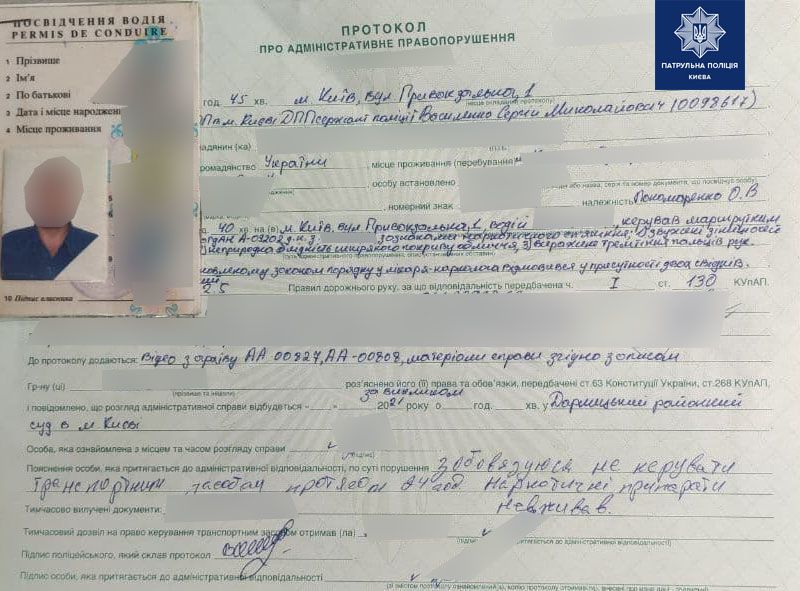 ПОСВІДЧЕННЯ ВОДІЯ
PERMIS DE CONDUIRE
1 Прізвище
2 Ім'я
2 По батькові
3 Дата і місце народжен
4 Місце проживання
10 Підпис власника
ПАТРУЛЬНА ПОЛІЦІЯ
КИЄВА
ПРОТОКОЛ
ПРО АДМІНІСТРАТИВНЕ ПРАВОПОРУШЕННЯ
год. 45 хв. м. Київ, вул Привокзальна, 1
(місце складання протоколу)
м. Києві ДПП сержант поліції Василенко Сергій Миколайович (0098617)
мадянин (ка)
громадянство України , місце проживання (перебування)
, особу встановлено
, номерний знак належність Пономаренко О.В
40 хв. на (в) м. Київ, вул Привокзальна, 1, водій керував маршрутним
БогдАН А-09202 д.н.з з ознаками наркотичного сп'яніння: 1) звужені зіниці очей
2) неприродна блідість шкірякого покриву обличчя, 3) виражене тремтіння пальців рук.
законом порядку у лікаря-нарколога відмовився у присутності двох свідків.
2.5 Правил дорожнього руху, за що відповідальність передбачена ч. I ст. 130 КУпАП.
До протоколу додаються: Відео з архіву АА 00827, АА-00808, матеріали справи згідно з описом
Гр-ну (ці) роз'яснено його (її) права та обов'язки, передбачені ст.63 Конституції України, ст.268 КУпАП,
(прізвище та ініціали)
за викликом
і повідомлено, що розгляд адміністративної справи відбудеться « » 2021 року о год. хв. у Дарницький районний
суд в м Києві
Особа, яка ознайомлена з місцем та часом розгляду справи
(підпис)
Пояснення особи, яка притягається до адміністративної відповідальності, по суті порушення зобовязуюся не керувати
транспортним засобом протягом 24 год Наркотичні припарати
невживав.
Тимчасово вилучені документи:
Тимчасовий дозвіл на право керування транспортним засобом отримав (ла)
Підпис поліцейського, який склав протокол
Підпис особи, яка притягається до адміністративної відповідальності